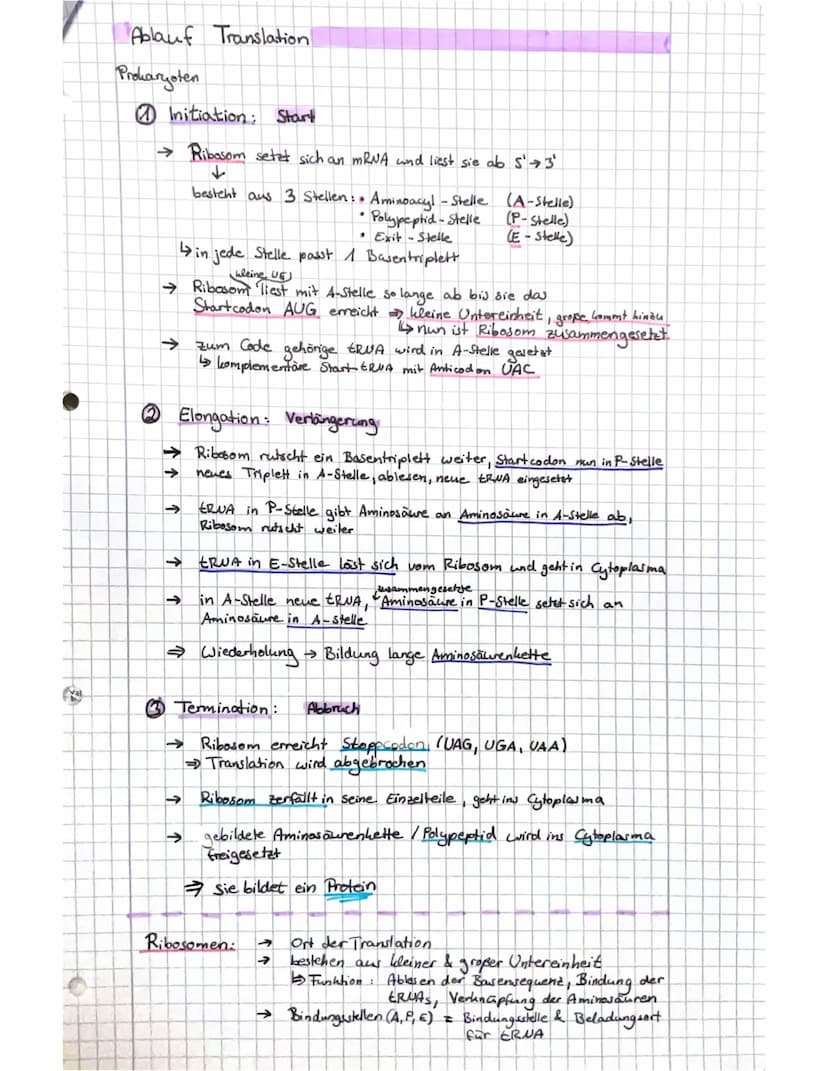 Ablauf Translation
Prokaryoten
① Initiation: Start
→ Ribosom setzt sich an mRNA und liest sie ab 5'→3'
↓
besteht aus 3 Stellen: • Aminoacyl-Stelle (A-Stelle)
• Polypeptid-Stelle (P-Stelle)
• Exit-Stelle (E-Stelle)
↳ in jede Stelle passt 1 Basentriplett
kleine UE
→ Ribosom liest mit A-Stelle so lange ab bis sie das
Startcodon AUG erreicht ⇒ kleine Untereinheit, große kommt hinzu
↳ nun ist Ribosom zusammengesetzt
→ zum Code gehörige tRNA wird in A-Stelle gesetzt
↳ komplementäre Start-tRNA mit Anticodon UAC
② Elongation: Verlängerung
→ Ribosom rutscht ein Basentriplett weiter, Startcodon nun in P-Stelle
→ neues Triplett in A-Stelle, ablesen, neue tRNA eingesetzt
→ tRNA in P-Stelle gibt Aminosäure an Aminosäure in A-Stelle ab,
Ribosom rutscht weiter
→ tRNA in E-Stelle löst sich vom Ribosom und geht in Cytoplasma
zusammengesetzte
→ in A-Stelle neue tRNA, Aminosäure in P-Stelle setzt sich an
Aminosäure in A-Stelle
⇒ Wiederholung → Bildung lange Aminosäurenkette
③ Termination: Abbruch
→ Ribosom erreicht Stoppcodon (UAG, UGA, UAA)
⇒ Translation wird abgebrochen
→ Ribosom zerfällt in seine Einzelteile, geht ins Cytoplasma
→ gebildete Aminosäurenkette / Polypeptid wird ins Cytoplasma
freigesetzt
⇒ sie bildet ein Protein
Ribosomen: → Ort der Translation
→ bestehen aus kleiner & großer Untereinheit
↳ Funktion: Ablesen der Basensequenz, Bindung der
tRNAs, Verknüpfung der Aminosäuren
→ Bindungsstellen (A, P, E) = Bindungsstelle & Beladungsort
für tRNA